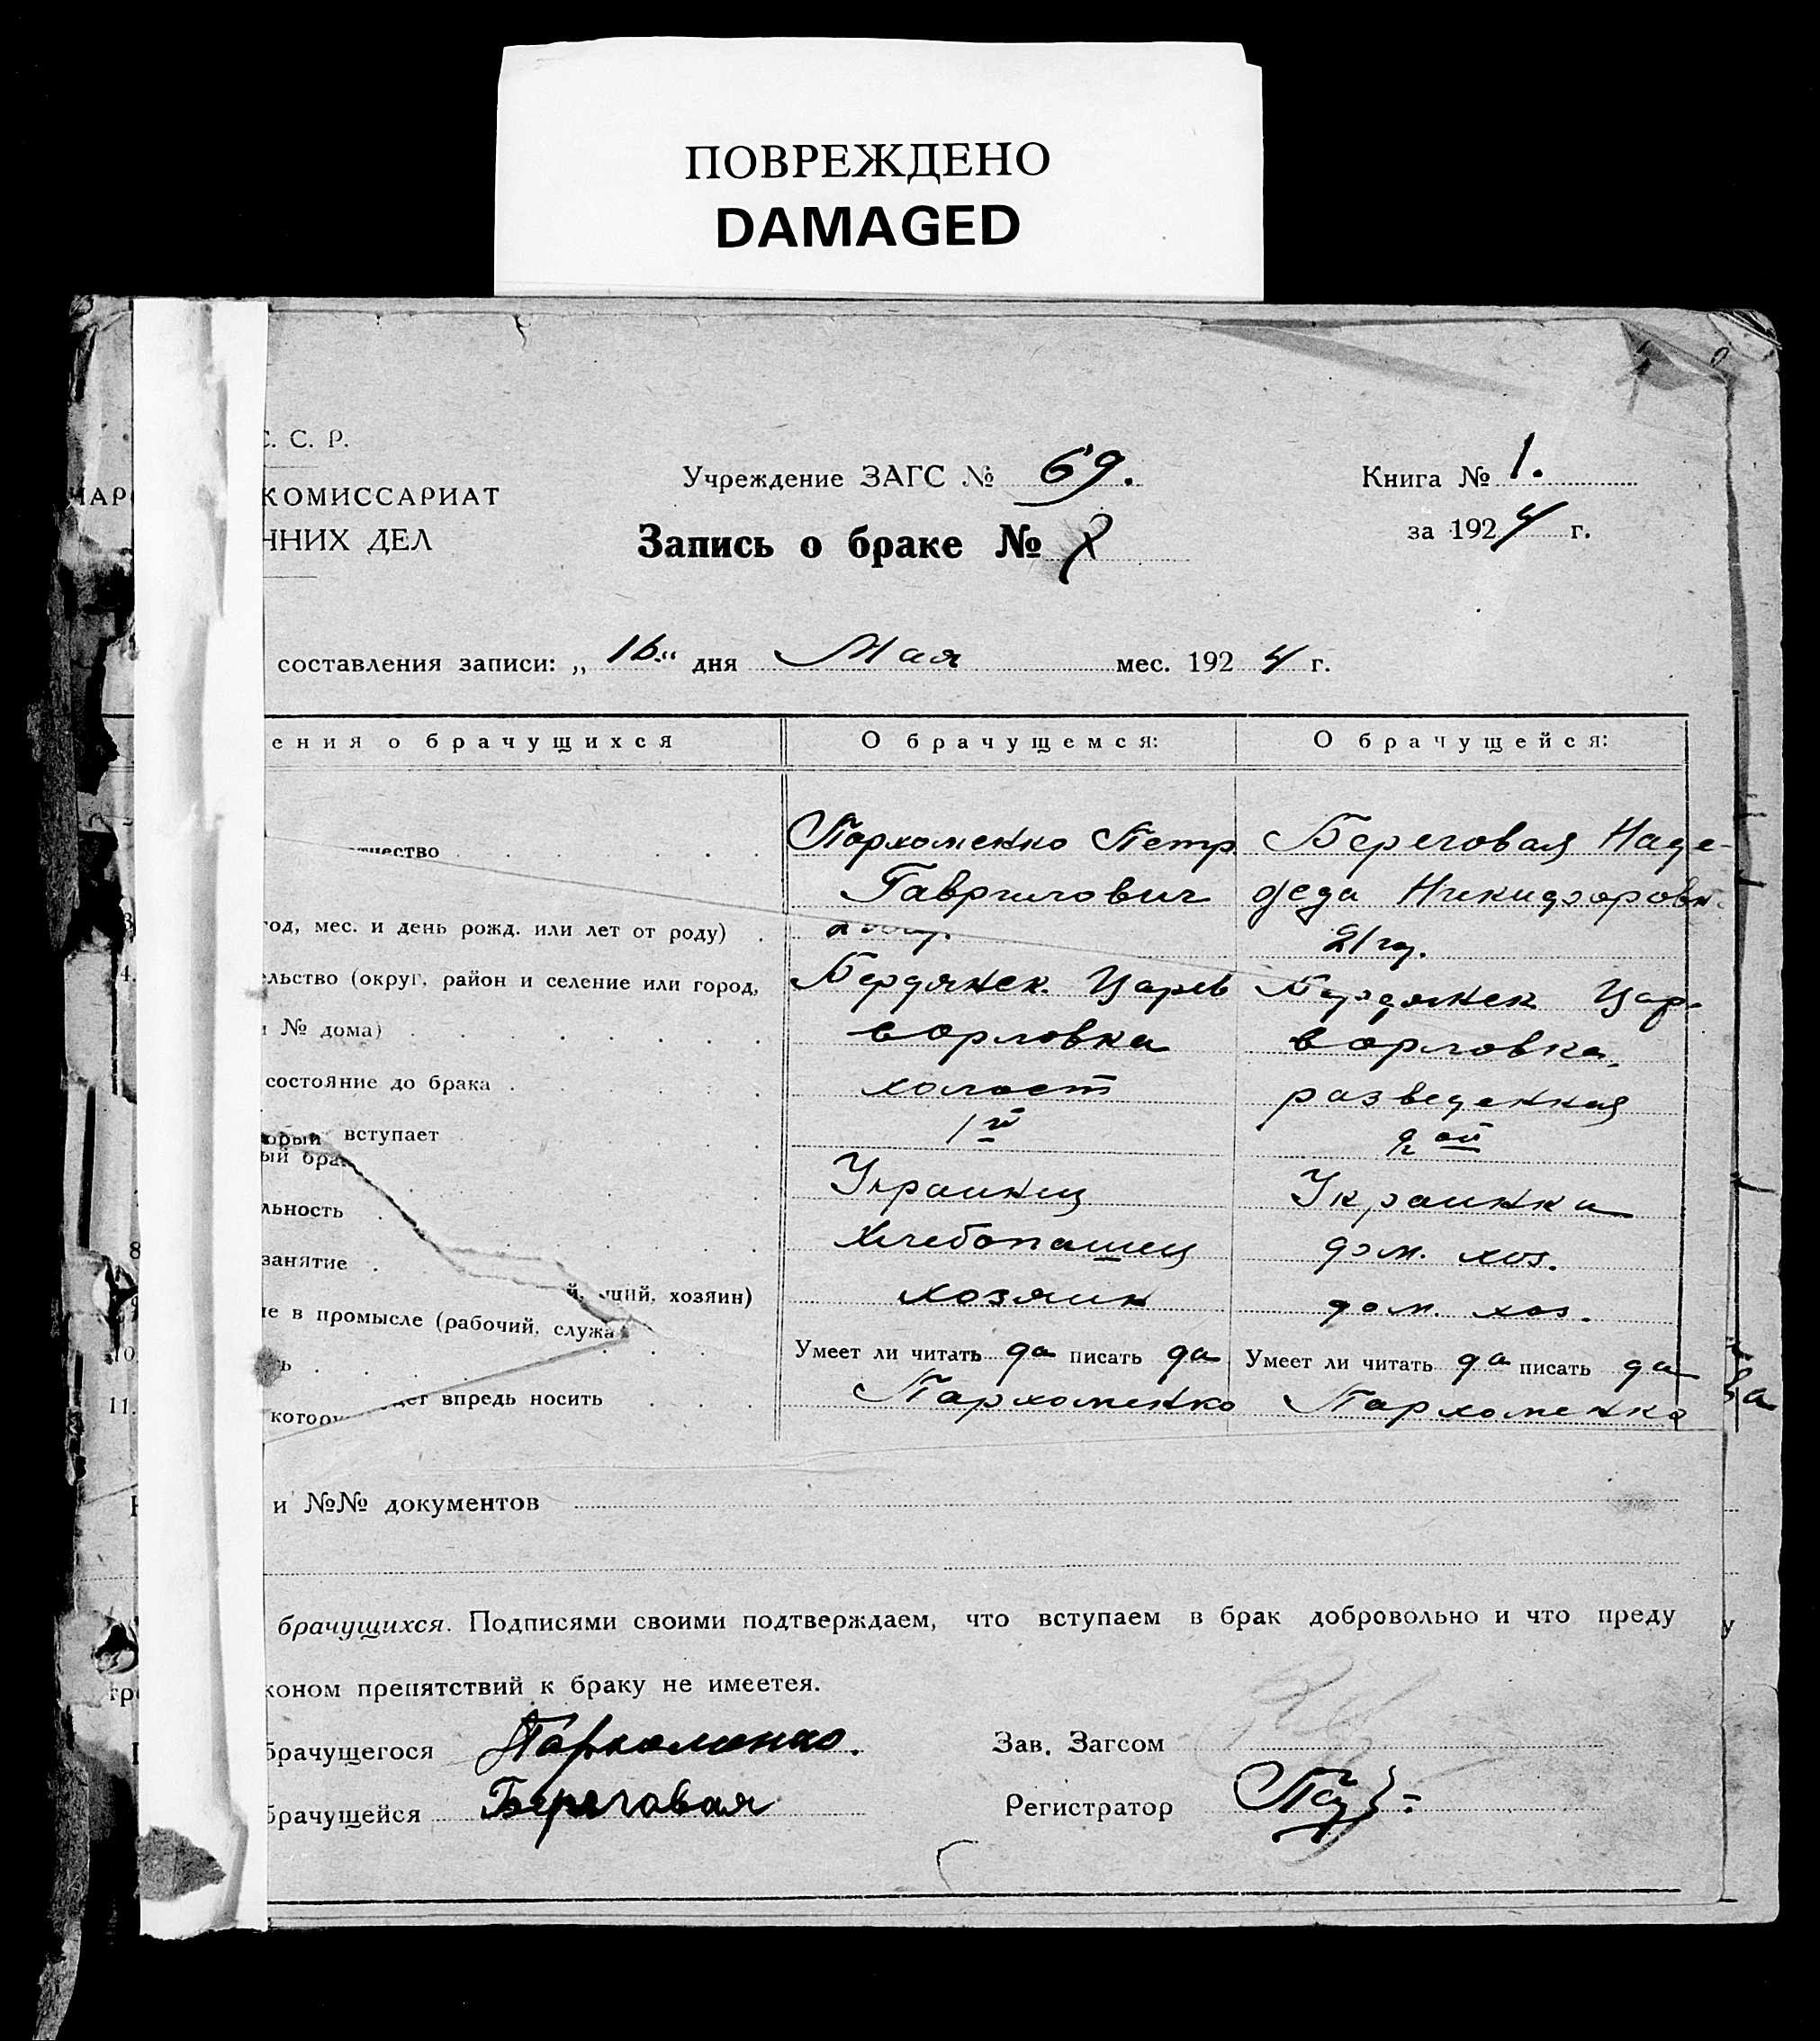 ПОВРЕЖДЕНО
DAMAGED
С. С. Р.
НАР КОМИССАРИАТ
ННИХ ДЕЛ
Учреждение ЗАГС № 69.
Книга № 1.
Запись о браке №
за 1924 г.
составления записи: „ 16 “ дня Мая мес. 1924 г.
ения о брачущихся О брачущемся: О брачущейся:
тчество Пархоменко Петр Береговая Наде-
Гаврилович жда Никифоровн
год, мес. и день рожд. или лет от роду) 21 го.
4. ельство (округ, район и селение или город, Бердянск. Царев Бердянск Цар-
и № дома) ворловка
состояние до брака холост разведенная
орый вступает 1й 2ой
ый бра
льность Украинец Украинка
8 занятие Хлебопашец дом. хоз.
й. щий, хозяин) хозяин дом. хоз.
ие в промысле (рабочий, служа
10 ь Умеет ли читать да писать да Умеет ли читать да писать да
11. котору дет впредь носить Пархоменко Пархоменко
и №№ документов
брачущихся. Подписями своими подтверждаем, что вступаем в брак добровольно и что преду
коном препятствий к браку не имеетея.
брачущегося Пархоменко. Зав. Загсом
брачущейся Береговая Регистратор